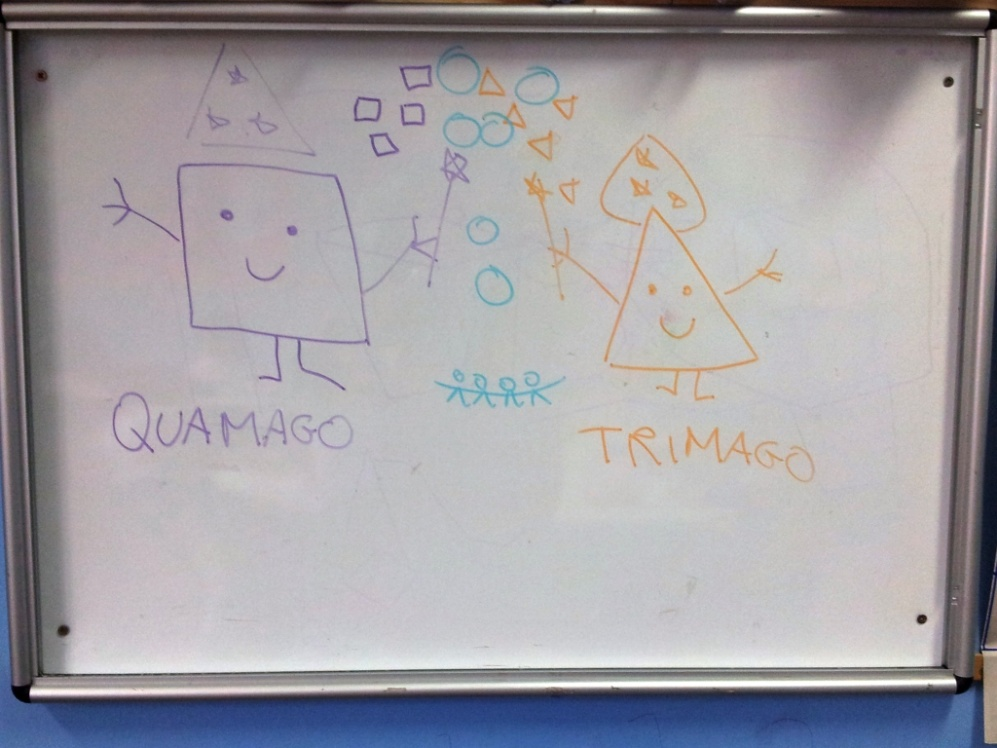 QUAMAGO
TRIMAGO